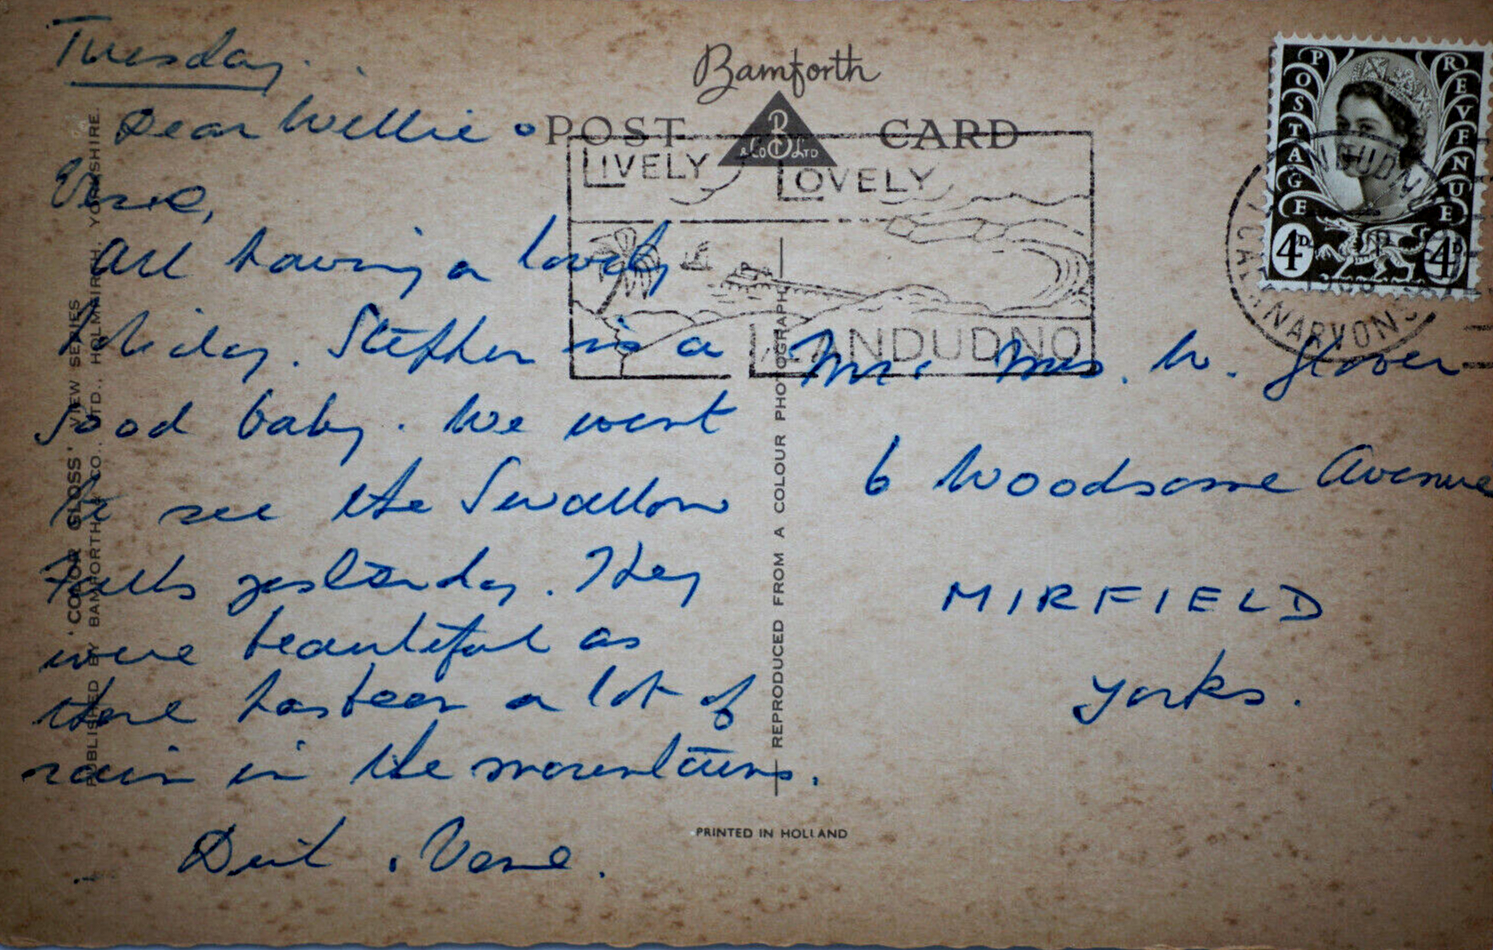 Tuesday.
Dear Willie &
Vera,
All having a lovely
holiday. Stephen is a
good baby. We went
to see the Swallow
Falls yesterday. They
were beautiful as
there has been a lot of
rain in the mountains.
Bamforth
POST CARD
B
& CO LTD
LIVELY
LOVELY
LLANDUDNO
POSTAGE REVENUE
4D 4D
Mr. Mrs. W. Glover
6 Woodsome Avenue
MIRFIELD
Yorks.
'COLOR GLOSS' VIEW SERIES
PUBLISHED BY BAMFORTH & CO., LTD., HOLMFIRTH, YORKSHIRE.
REPRODUCED FROM A COLOUR PHOTOGRAPH
PRINTED IN HOLLAND